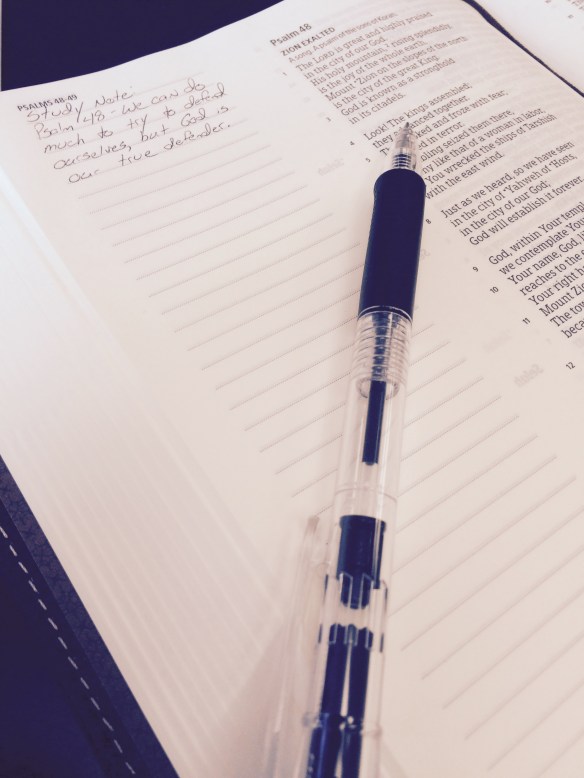 PSALMS 48:49
Study Note:
Psalm 48 - We can do
much to try to defend
ourselves, but God is
our true defender.
Psalm 48
ZION EXALTED
A song. A psalm of the sons of Korah.
1 The LORD is great and highly praised
in the city of our God.
His holy mountain, rising splendidly,
is the joy of the whole earth.
Mount Zion on the slopes of the north
is the city of the great King.
3 God is known as a stronghold
in its citadels.
4 Look! The kings assembled;
they together.
5 and froze with fear,
in terror.
seized them there,
like that of a woman in labor,
You wrecked the ships of Tarshish
with the east wind.
8 Just as we heard, so we have seen
in the city of Yahweh of Hosts,
in the city of our God;
God will establish it forever.
9 God, within Your
we contemplate
10 Your name, God,
reaches to the
Your right
11 Mount
The
12